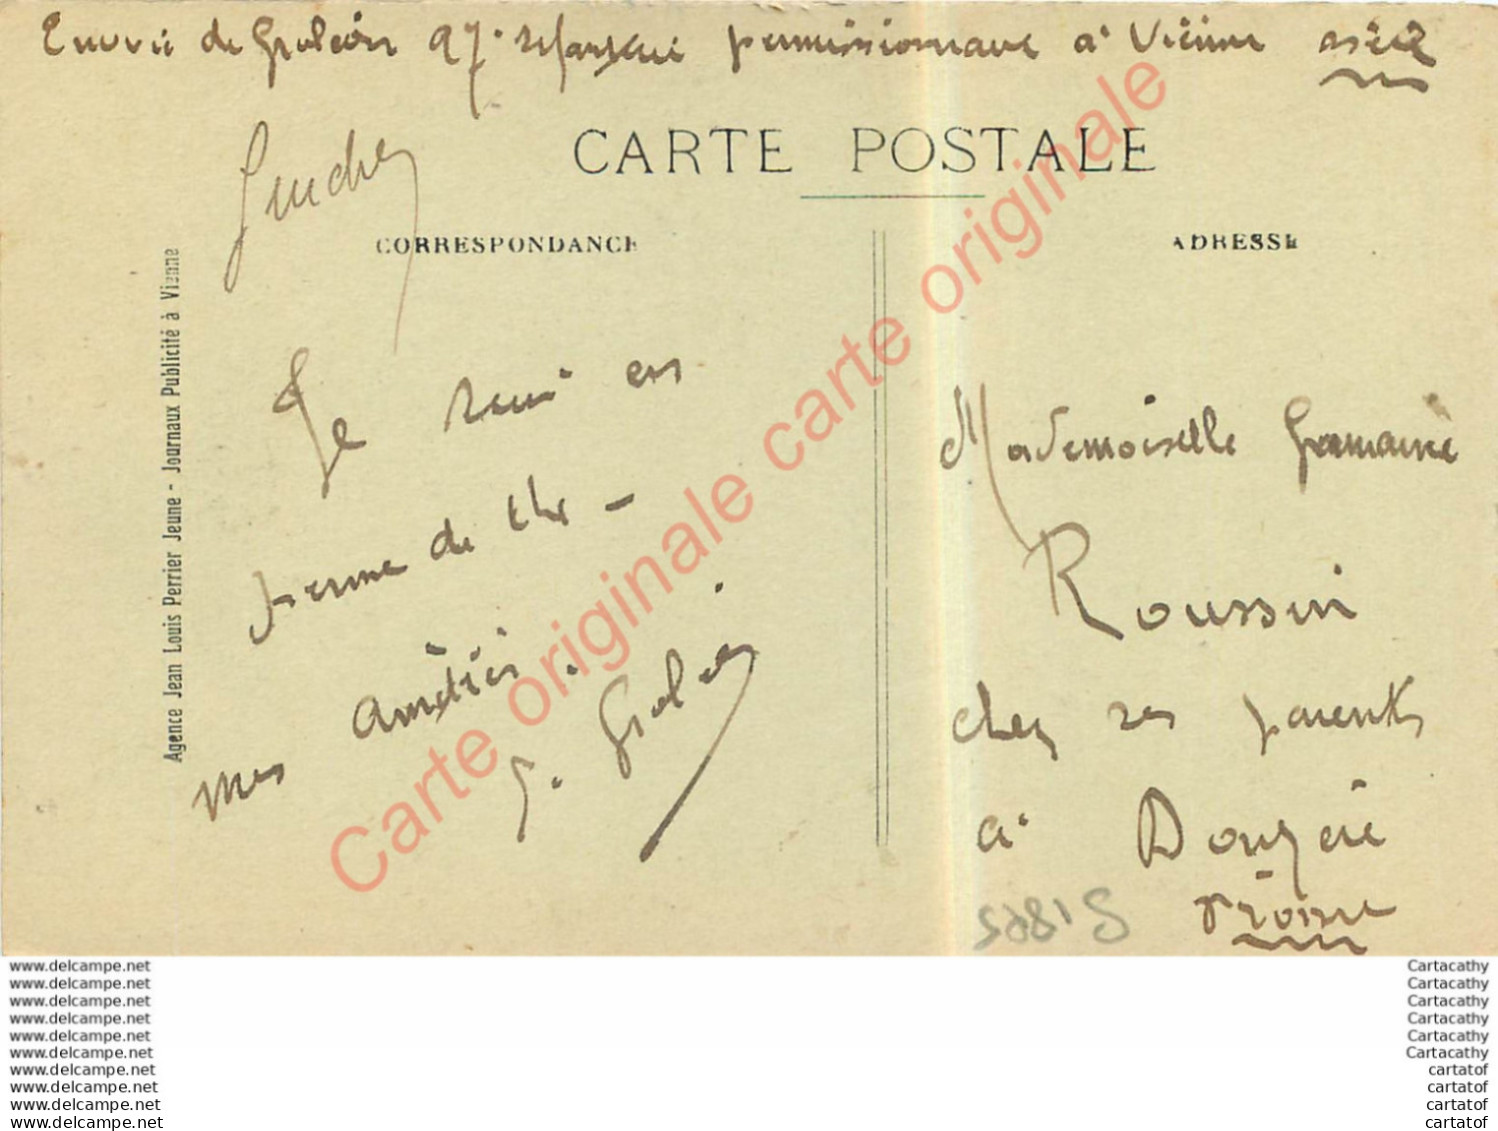 Envoi de Groléon 97e permissionnaire à Vienne Isère
CARTE POSTALE
CORRESPONDANCE
ADRESSE
Agence Jean Louis Perrier Jeune - Journaux Publicité à Vienne
Je suis en
perme de
mes
Mademoiselle Germaine
Roussin
chez ses parents
à Donzère
Drôme
Carte originale carte originale
www.delcampe.net
www.delcampe.net
www.delcampe.net
www.delcampe.net
www.delcampe.net
www.delcampe.net
www.delcampe.net
www.delcampe.net
www.delcampe.net
www.delcampe.net
Cartacathy
Cartacathy
Cartacathy
Cartacathy
Cartacathy
Cartacathy
cartatof
cartatof
cartatof
cartatof